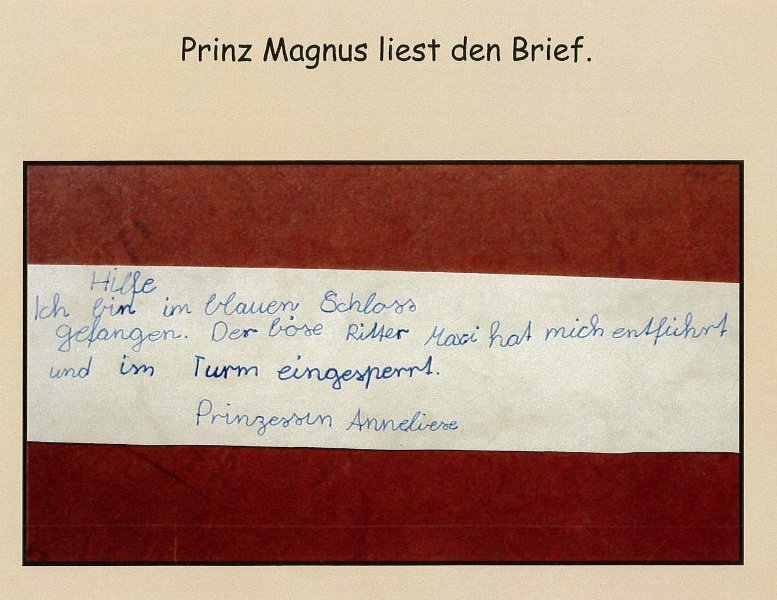 Prinz Magnus liest den Brief.
Hilfe
Ich bin im blauen Schloss
gefangen. Der böse Ritter Maxi hat mich entführt
und im Turm eingesperrt.
Prinzessin Anneliese